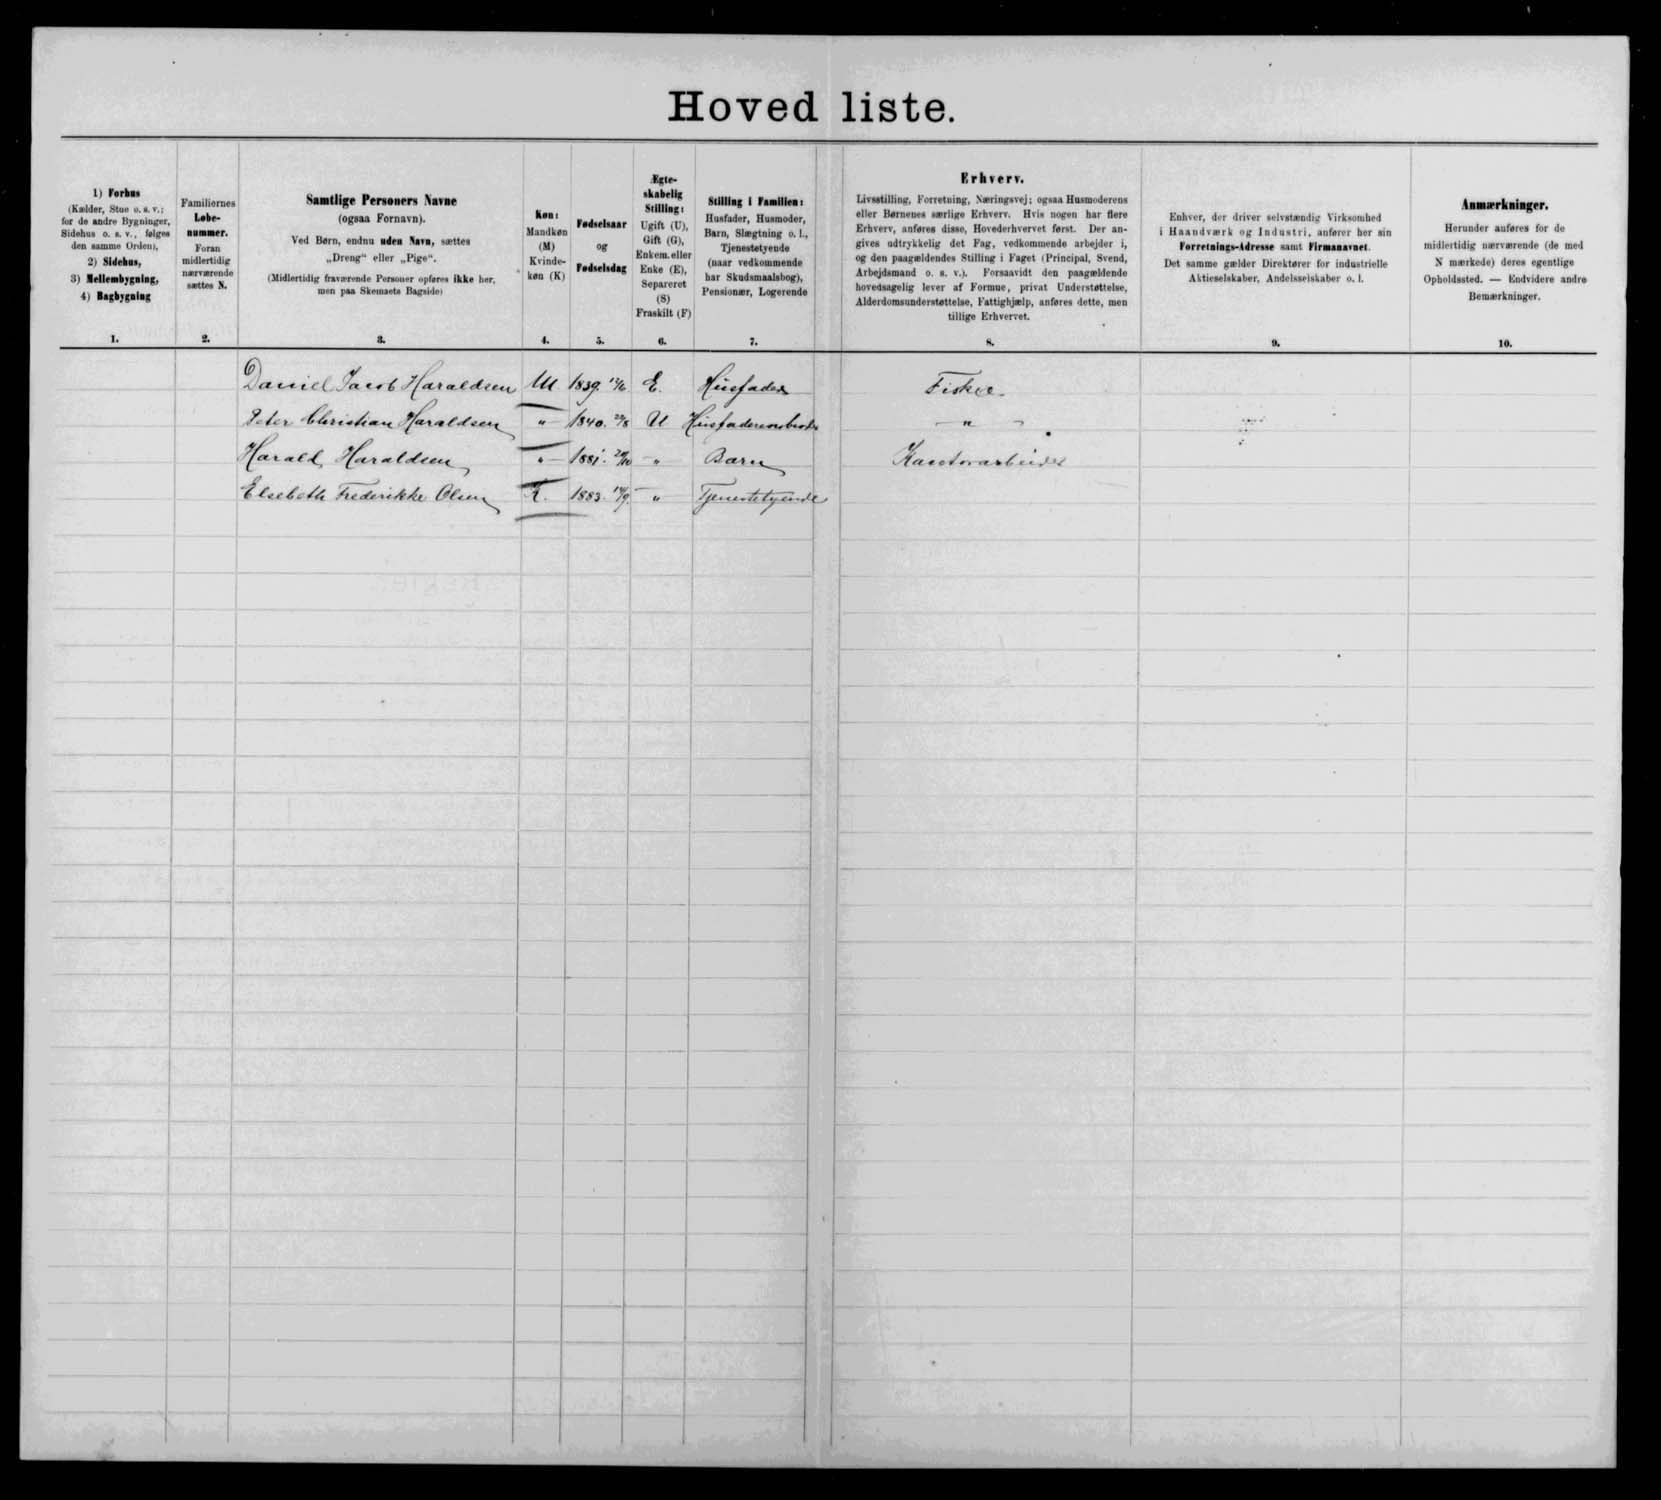 Hoved liste.
1) Forhus
(Kælder, Stue o. s. v.;
for de andre Bygninger,
Sidehus o. s. v., følges
den samme Orden),
2) Sidehus,
3) Mellembygning,
4) Bagbygning
1.
Familiernes
Løbe-
nummer.
Foran
midlertidig
nærværende
sættes N.
2.
Samtlige Personers Navne
(ogsaa Fornavn).
Ved Børn, endnu uden Navn, sættes
„Dreng“ eller „Pige“.
(Midlertidig fraværende Personer opføres ikke her,
men paa Skemaets Bagside)
3.
Køn:
Mandkøn
(M)
Kvinde-
køn (K)
4.
Fødselsaar
og
Fødselsdag
5.
Ægte-
skabelig
Stilling:
Ugift (U),
Gift (G),
Enkem. eller
Enke (E),
Separeret
(S)
Fraskilt (F)
6.
Stilling i Familien:
Husfader, Husmoder,
Barn, Slægtning o. l.,
Tjenestetyende
(naar vedkommende
har Skudsmaalsbog),
Pensionær, Logerende
7.
Erhverv.
Livsstilling, Forretning, Næringsvej; ogsaa Husmoderens
eller Børnenes særlige Erhverv. Hvis nogen har flere
Erhverv, anføres disse, Hovederhvervet først. Der an-
gives udtrykkelig det Fag, vedkommende arbejder i,
og den paagældendes Stilling i Faget (Principal, Svend,
Arbejdsmand o. s. v.). Forsaavidt den paagældende
hovedsagelig lever af Formue, privat Understøttelse,
Alderdomsunderstøttelse, Fattighjælp, anføres dette, men
tillige Erhvervet.
8.
Enhver, der driver selvstændig Virksomhed
i Haandværk og Industri, anfører her sin
Forretnings-Adresse samt Firmanavnet.
Det samme gælder Direktører for industrielle
Aktieselskaber, Andelsselskaber o. l.
9.
Anmærkninger.
Herunder anføres for de
midlertidig nærværende (de med
N mærkede) deres egentlige
Opholdssted. — Endvidere andre
Bemærkninger.
10.
Daniel Jacob Haraldsen M 1839 E. Husfader Fisker
Peter Christian Haraldsen " 1840. U Husfaderens "
Harald Haraldsen " 1881 " Barn Kontorarbeider
Elsebeth Frederikke Olsen K. 1883. " Tjenestetyende